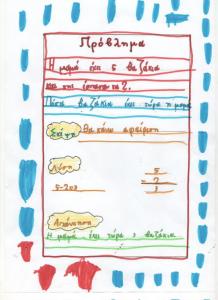 Πρόβλημα
Η μαμά έχει 5 βαζάκια
και της έσπασαν τα 2.
Πόσα βαζάκια έχει τώρα η μαμά
Σκέψη Θα κάνω αφαίρεση
Λύση
5
- 2
3
5-2=3
Απάντηση
Η μαμά έχει τώρα 3 βαζάκια